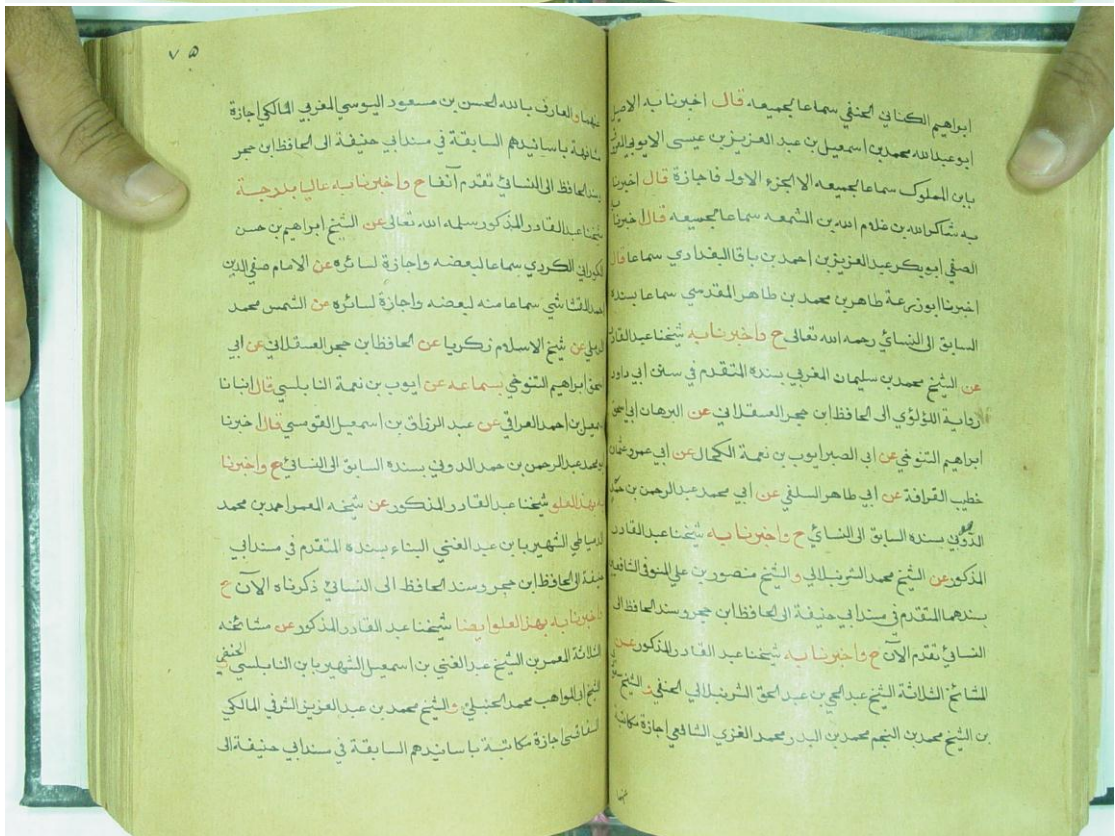 ابراهيم الكناني الحنفي سماعا لجميعه قال اخبرنا به الاصيل
ابوعبدالله محمد بن اسمعيل بن عبد العزيز بن عيسى الايوبي
بابن الملوك سماعا لجميعه الا الجزء الاول فاجازة قال اخبرنا
به شاكر الله بن غلام الله بن الشمعه سماعا لجميعه قال اخبرنا
الصفي ابوبكر عبد العزيز بن احمد بن باقا البغدادي سماعا قال
اخبرنا ابوزرعة طاهر بن محمد بن طاهر المقدسي سماعا بسنده
السابق الى النسائي رحمه الله تعالى ح واخبرنا به شيخنا عبد القادر
عن الشيخ محمد بن سليمان المغربي بسنده المتقدم في سنن ابي داود
رواية اللؤلؤي الى الحافظ ابن حجر العسقلاني عن البرهان ابي اسحق
ابراهيم التنوخي عن ابي الصبر ايوب بن نعمة الكحال عن ابي عمرو عثمان
خطيب القرافة عن ابي طاهر السلفي عن ابي محمد عبد الرحمن بن حمد
الدوني بسنده السابق الى النسائي ح واخبرنا به شيخنا عبد القادر
المذكور عن الشيخ محمد الشرنبلالي و الشيخ منصور بن علي المنوفي الشافعي
بسندهما المتقدم في مسند ابي حنيفة الى الحافظ ابن حجر وسند الحافظ الى
النسائي تقدم الآن ح واخبرنا به شيخنا عبد القادر المذكور عن
المشائخ الثلاثة الشيخ عبد الحي بن عبد الحق الشرنبلالي الحنفي و الشيخ
بن الشيخ محمد بن النجم محمد بن البدر محمد الغزي الشافعي اجازة مكاتبة
منهما
٧٥
منهما و العارف بالله الحسن بن مسعود اليوسي المغربي المالكي اجازة
مشافهة باسانيدهم السابقة في مسند ابي حنيفة الى الحافظ ابن حجر
بسند الحافظ الى النسائي تقدم آنفا ح واخبرنا به عاليا بدرجة
شيخنا عبد القادر المذكور سلمه الله تعالى عن الشيخ ابراهيم بن حسن
الكوراني الكردي سماعا لبعضه واجازة لسائره عن الامام صفي الدين
احمد القشاشي سماعا منه لبعضه واجازة لسائره عن الشمس محمد
الرملي عن شيخ الاسلام زكريا عن الحافظ ابن حجر العسقلاني عن ابي
اسحق ابراهيم التنوخي بسماعه عن ايوب بن نعمة النابلسي قال انبانا
اسمعيل بن احمد العراقي عن عبد الرزاق بن اسمعيل القومسي قال اخبرنا
ابومحمد عبد الرحمن بن حمد الدوني بسنده السابق الى النسائي ح واخبرنا
به بهذا العلو شيخنا عبد القادر المذكور عن شيخه المعمر احمد بن محمد
الدمياطي الشهير بابن عبد الغني البناء بسنده المتقدم في مسند ابي
حنيفة الى الحافظ ابن حجر وسند الحافظ الى النسائي ذكرناه الآن ح
واخبرنا به بهذا العلو ايضا شيخنا عبد القادر المذكور عن مشائخه
الثلاثة المعمر بن الشيخ عبد الغني بن اسمعيل الشهير بابن النابلسي الحنفي
الشيخ ابي المواهب محمد الحنبلي و الشيخ محمد بن عبد العزيز الشرفي المالكي
السفاقسي اجازة مكاتبة باسانيدهم السابقة في مسند ابي حنيفة الى